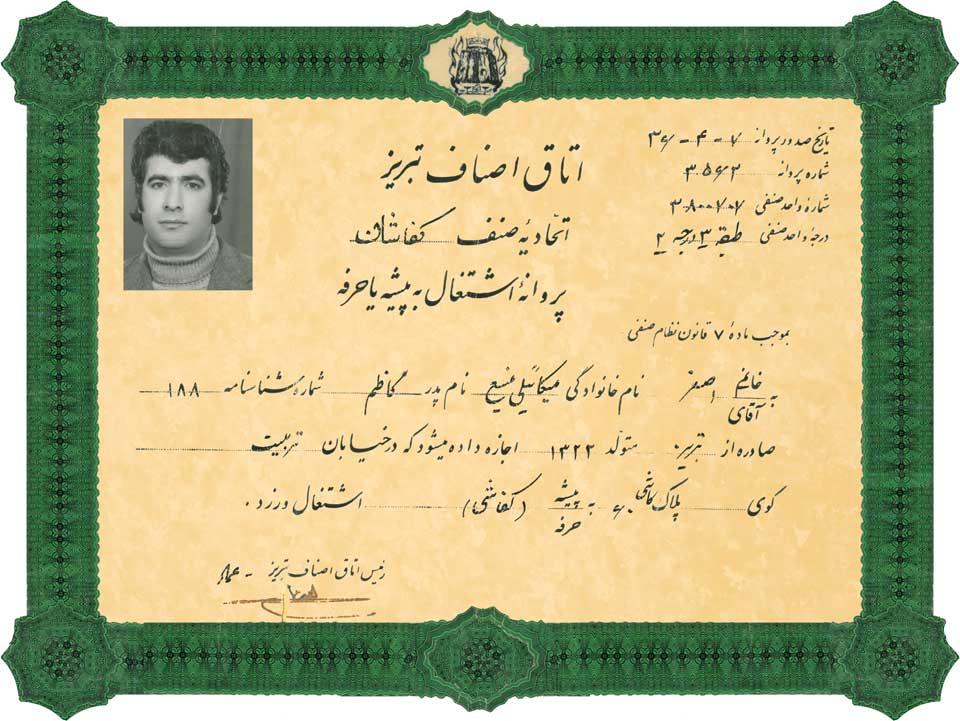 تاریخ صدور پروانه ۷-۴-۳۶
شماره پروانه ۳۰۵۶۲
شمارهٔ واحد صنفی ۳۸۰۰۷۰۷
درجهٔ واحد صنفی طبقه ۳ درجه ۲
اتاق اصناف تبریز
اتحادیهٔ صنف کفاشان
پروانهٔ اشتغال به پیشه یا حرفه
بموجب مادهٔ ۷ قانون نظام صنفی
به خانم آقای اصغر نام خانوادگی میکائیلی نام پدر کاظم شماره شناسنامه ۱۸۸
صادره از تبریز متولد ۱۳۲۲ اجازه داده میشود که در خیابان تربیت
کوی پلاک کاشی ۶۰ به پیشه حرفه (کفاشی) اشتغال ورزد.
رئیس اتاق اصناف تبریز -